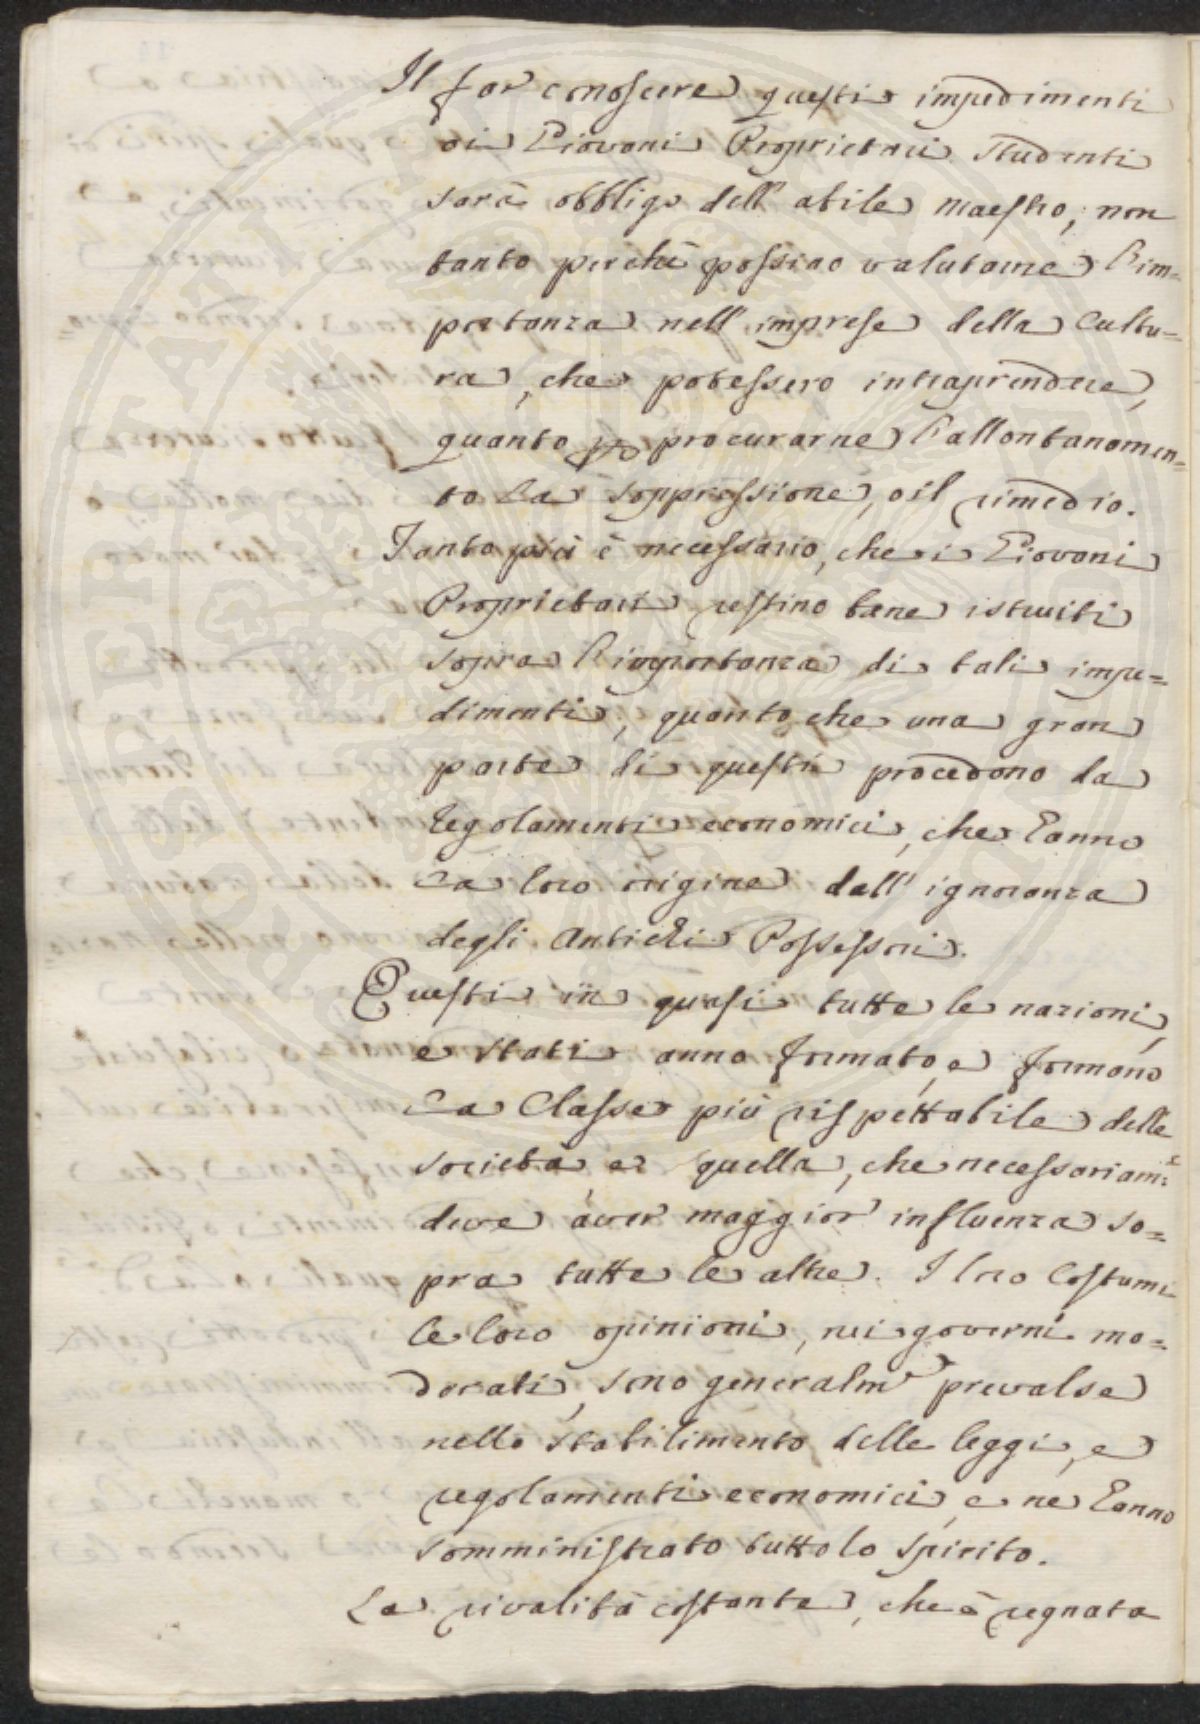 Il far conoscere questi impedimenti
ai Giovani Proprietari Studenti
sarà obbligo dell'abile maestro, non
tanto perchè possino valutarne l'im=
portanza nell'imprese della Cultu=
ra, che potessero intraprendere,
quanto per procurarne l'allontanamen=
to la soppressione, o il rimedio.
Tanto più è necessario, che i Giovani
Proprietari restino bene istruiti
sopra l'importanza di tali impe=
dimenti, quanto che una gran
parte di questi procedono da
regolamenti economici, che hanno
la loro origine dall'ignoranza
degli Antichi Possessori.
Questi in quasi tutte le nazioni,
e stati anno formato, e formano
la Classe più rispettabile della
società, e quella, che necessariam:e
deve aver maggior influenza so=
pra tutte le altre. I loro Costumi
le loro opinioni, nei governi mo=
dorati, sono generalm:e prevalse
nello stabilimento delle leggi, e
regolamenti economici, e ne hanno
somministrato tutto lo spirito.
La rivalità costante, che è regnata
PROSPERITATI PUBLICAE